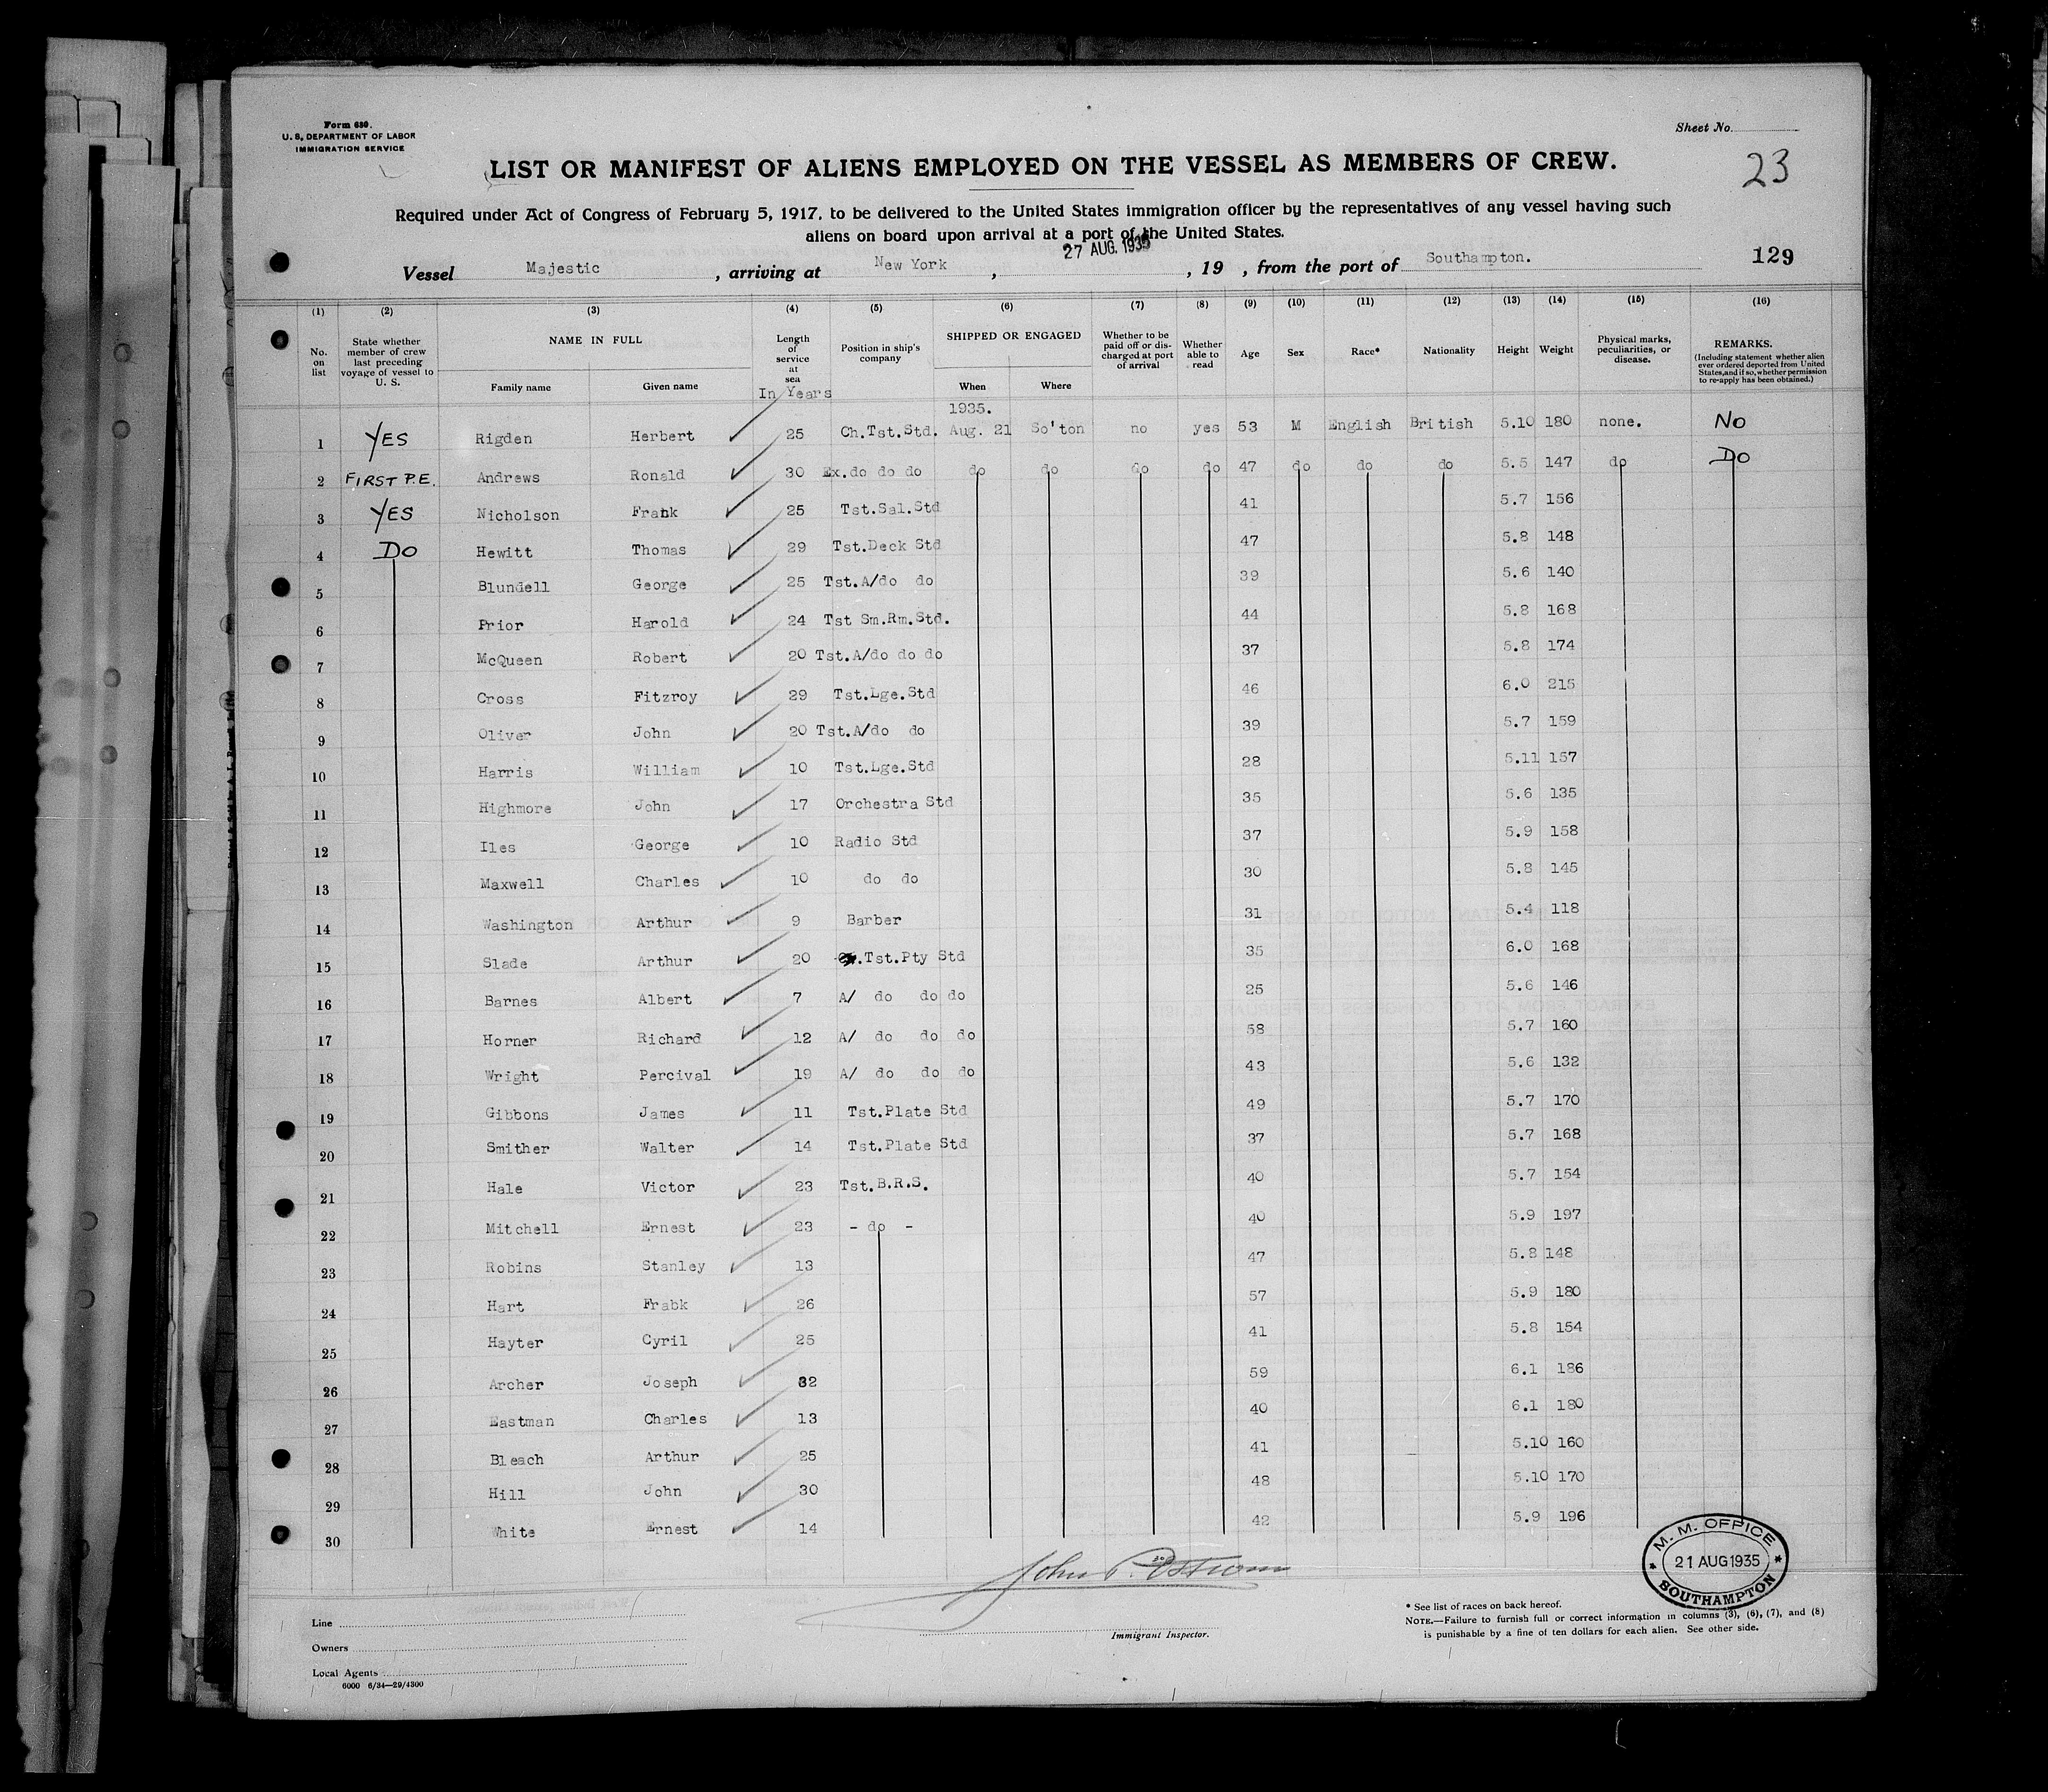 Form 630.
U. S. DEPARTMENT OF LABOR
IMMIGRATION SERVICE
Sheet No.
23
LIST OR MANIFEST OF ALIENS EMPLOYED ON THE VESSEL AS MEMBERS OF CREW.
Required under Act of Congress of February 5, 1917, to be delivered to the United States immigration officer by the representatives of any vessel having such
aliens on board upon arrival at a port of the United States.
27 AUG. 1935
Vessel Majestic , arriving at New York , , 19 , from the port of Southampton. 129
(1) (2) (3) (4) (5) (6) (7) (8) (9) (10) (11) (12) (13) (14) (15) (16)
No. on list
State whether member of crew last preceding voyage of vessel to U. S.
NAME IN FULL
Family name Given name
Length of service at sea
In Years
Position in ship's company
SHIPPED OR ENGAGED
When Where
Whether to be paid off or discharged at port of arrival
Whether able to read
Age Sex Race* Nationality Height Weight
Physical marks, peculiarities, or disease.
REMARKS.
(Including statement whether alien ever ordered deported from United States, and if so, whether permission to re-apply has been obtained.)
1935.
1 YES Rigden Herbert 25 Ch.Tst.Std. Aug. 21 So'ton no yes 53 M English British 5.10 180 none. No
2 FIRST P.E. Andrews Ronald 30 Ex.do do do do do do do 47 do do do 5.5 147 do DO
3 YES Nicholson Frank 25 Tst.Sal.Std 41 5.7 156
4 DO Hewitt Thomas 29 Tst.Deck Std 47 5.8 148
5 Blundell George 25 Tst.A/do do 39 5.6 140
6 Prior Harold 24 Tst Sm.Rm.Std. 44 5.8 168
7 McQueen Robert 20 Tst.A/do do do 37 5.8 174
8 Cross Fitzroy 29 Tst.Lge.Std 46 6.0 215
9 Oliver John 20 Tst.A/do do 39 5.7 159
10 Harris William 10 Tst.Lge.Std 28 5.11 157
11 Highmore John 17 Orchestra Std 35 5.6 135
12 Iles George 10 Radio Std 37 5.9 158
13 Maxwell Charles 10 do do 30 5.8 145
14 Washington Arthur 9 Barber 31 5.4 118
15 Slade Arthur 20 .Tst.Pty Std 35 6.0 168
16 Barnes Albert 7 A/ do do do 25 5.6 146
17 Horner Richard 12 A/ do do do 58 5.7 160
18 Wright Percival 19 A/ do do do 43 5.6 132
19 Gibbons James 11 Tst.Plate Std 49 5.7 170
20 Smither Walter 14 Tst.Plate Std 37 5.7 168
21 Hale Victor 23 Tst.B.R.S. 40 5.7 154
22 Mitchell Ernest 23 - do - 40 5.9 197
23 Robins Stanley 13 47 5.8 148
24 Hart Frabk 26 57 5.9 180
25 Hayter Cyril 25 41 5.8 154
26 Archer Joseph 32 59 6.1 186
27 Eastman Charles 13 40 6.1 180
28 Bleach Arthur 25 41 5.10 160
29 Hill John 30 48 5.10 170
30 White Ernest 14 42 5.9 196
M. M. OFFICE
21 AUG 1935
SOUTHAMPTON
Line
Owners
Local Agents
6000 6/34—29/4300
Immigrant Inspector.
* See list of races on back hereof.
NOTE.—Failure to furnish full or correct information in columns (3), (6), (7), and (8)
is punishable by a fine of ten dollars for each alien. See other side.